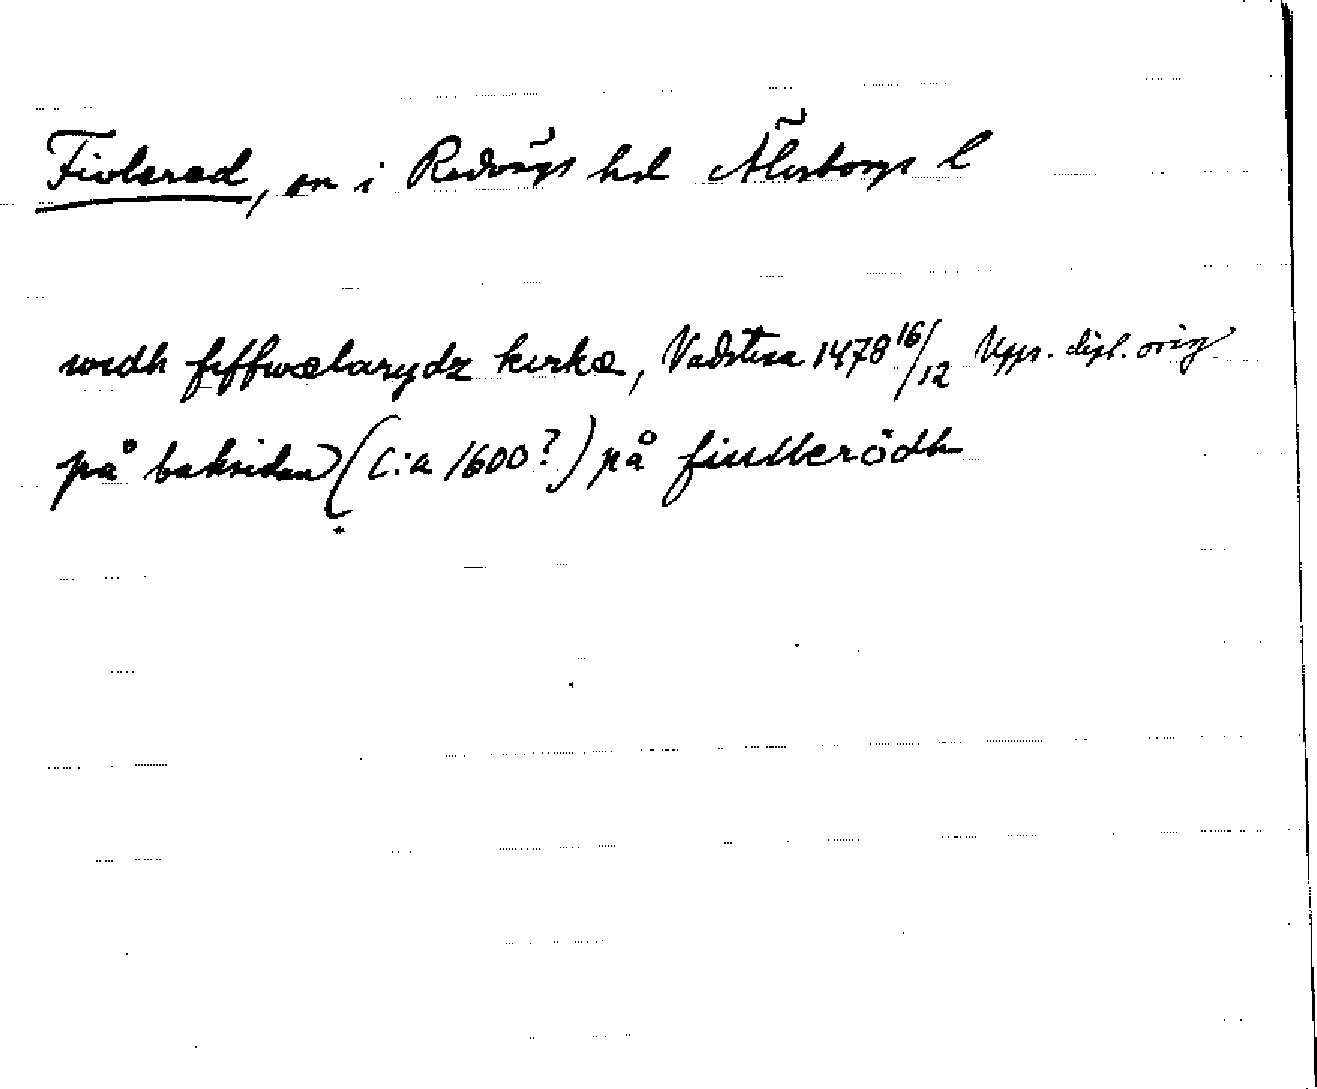 Fivlered, sn i Redvägs hd Älvsborgs l
widh fiffwælarydz kirkæ, Vadstena 1478 16/12 Upps. dipl. orig
på baksidan (C:a 1600?) på fiullerödh